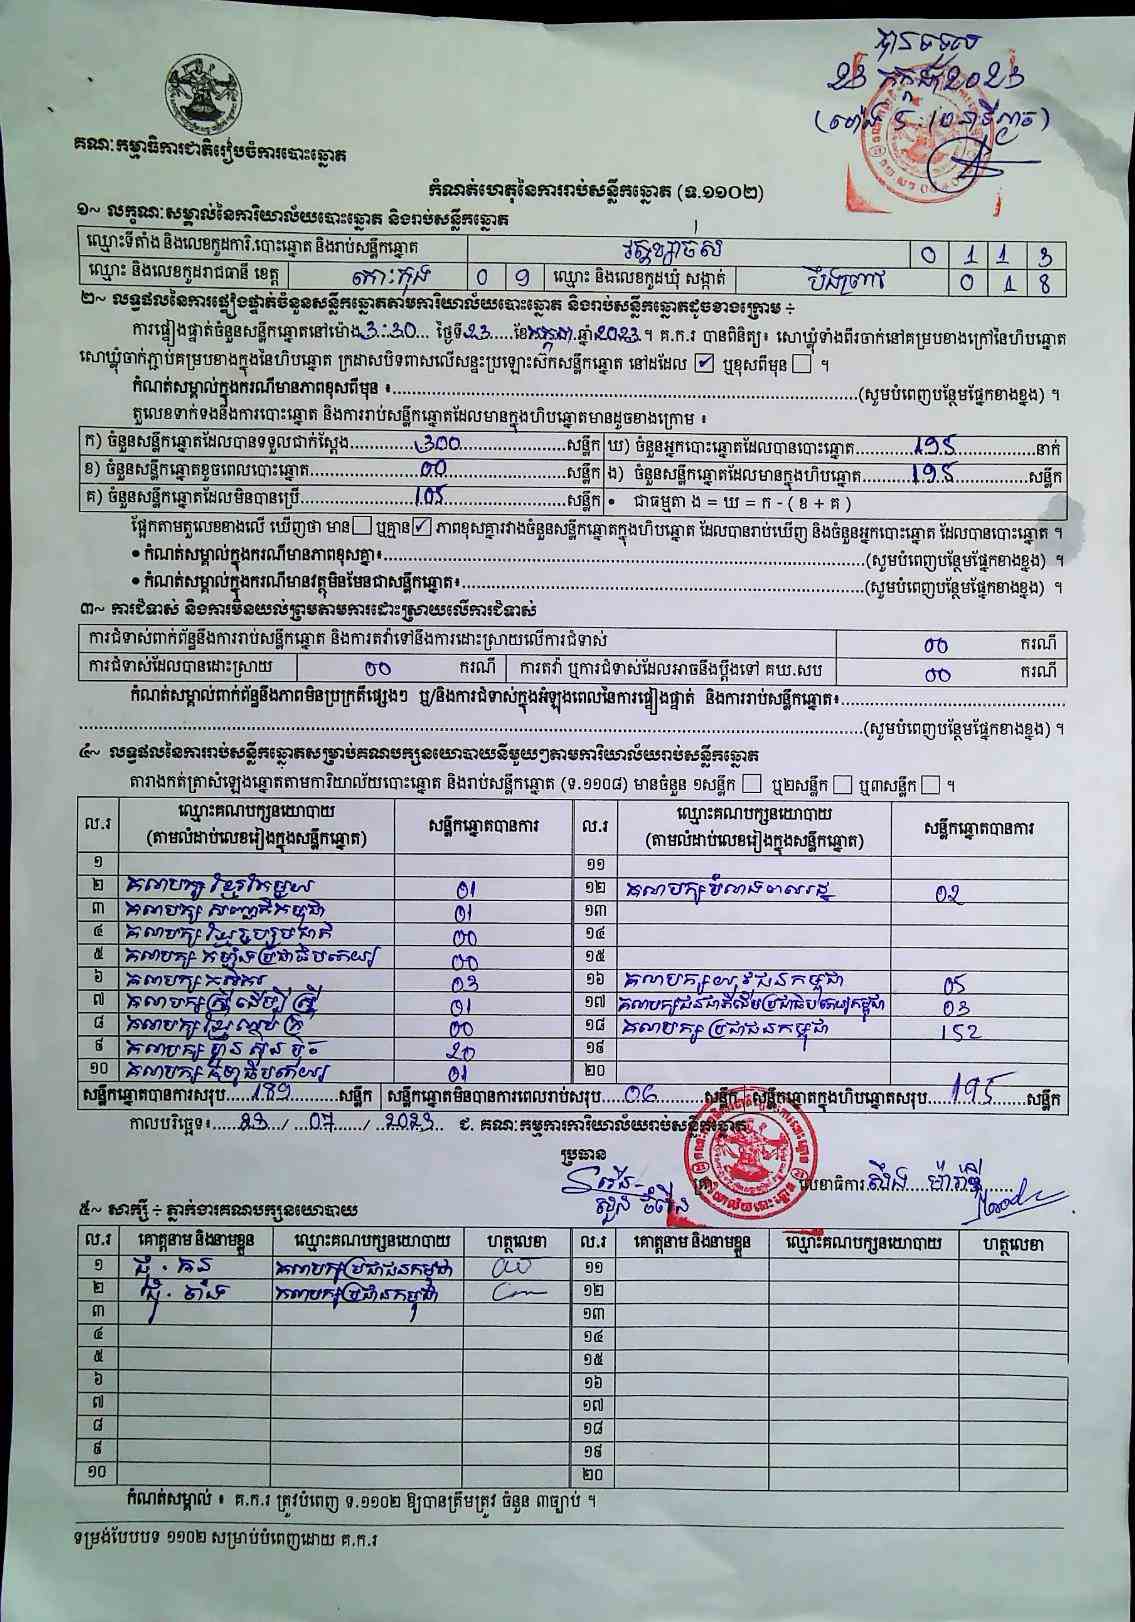 បានទទួល
23 កក្កដា 2023
គណៈកម្មាធិការជាតិរៀបចំការបោះឆ្នោត
កំណត់ហេតុនៃការរាប់សន្លឹកឆ្នោត (ទ.១១០២)
១~ លក្ខណៈសម្គាល់នៃការិយាល័យបោះឆ្នោត និងរាប់សន្លឹកឆ្នោត
ឈ្មោះទីតាំង និងលេខកូដការិ.បោះឆ្នោត និងរាប់សន្លឹកឆ្នោត វត្តខ្សាច់ស 0 1 1 3
ឈ្មោះ និងលេខកូដរាជធានី ខេត្ត កោះកុង 0 9 ឈ្មោះ និងលេខកូដឃុំ សង្កាត់ បឹងព្រាវ 0 1 8
២~ លទ្ធផលនៃការផ្ទៀងផ្ទាត់ចំនួនសន្លឹកឆ្នោតតាមការិយាល័យបោះឆ្នោត និងរាប់សន្លឹកឆ្នោតដូចខាងក្រោម ÷
ការផ្ទៀងផ្ទាត់ចំនួនសន្លឹកឆ្នោតនៅម៉ោង 3:30 ថ្ងៃទី 23 ខែ កក្កដា ឆ្នាំ 2023 ។ គ.ក.រ បានពិនិត្យ៖ សោឃ្លុំទាំងពីរចាក់នៅគម្របខាងក្រៅនៃហិបឆ្នោត
សោឃ្លុំចាក់ភ្ជាប់គម្របខាងក្នុងនៃហិបឆ្នោត ក្រដាសបិទពាសលើសន្ទះប្រឡោះស៊កសន្លឹកឆ្នោត នៅដដែល ✓ ឬខុសពីមុន ។
កំណត់សម្គាល់ក្នុងករណីមានភាពខុសពីមុន ៖ (សូមបំពេញបន្ថែមផ្នែកខាងខ្នង) ។
តួលេខទាក់ទងនឹងការបោះឆ្នោត និងការរាប់សន្លឹកឆ្នោតដែលមានក្នុងហិបឆ្នោតមានដូចខាងក្រោម ៖
ក) ចំនួនសន្លឹកឆ្នោតដែលបានទទួលជាក់ស្ដែង 300 សន្លឹក ឃ) ចំនួនអ្នកបោះឆ្នោតដែលបានបោះឆ្នោត 195 នាក់
ខ) ចំនួនសន្លឹកឆ្នោតខូចពេលបោះឆ្នោត 00 សន្លឹក ង) ចំនួនសន្លឹកឆ្នោតដែលមានក្នុងហិបឆ្នោត 195 សន្លឹក
គ) ចំនួនសន្លឹកឆ្នោតដែលមិនបានប្រើ 105 សន្លឹក • ជាធម្មតា ង = ឃ = ក - ( ខ + គ )
ផ្អែកតាមតួលេខខាងលើ ឃើញថា មាន ឬគ្មាន ✓ ភាពខុសគ្នារវាងចំនួនសន្លឹកឆ្នោតក្នុងហិបឆ្នោត ដែលបានរាប់ឃើញ និងចំនួនអ្នកបោះឆ្នោត ដែលបានបោះឆ្នោត ។
• កំណត់សម្គាល់ក្នុងករណីមានភាពខុសគ្នា៖ (សូមបំពេញបន្ថែមផ្នែកខាងខ្នង) ។
• កំណត់សម្គាល់ក្នុងករណីមានវត្ថុមិនមែនជាសន្លឹកឆ្នោត៖ (សូមបំពេញបន្ថែមផ្នែកខាងខ្នង) ។
៣~ ការជំទាស់ និងការមិនយល់ព្រមតាមការដោះស្រាយលើការជំទាស់
ការជំទាស់ពាក់ព័ន្ធនឹងការរាប់សន្លឹកឆ្នោត និងការតវ៉ាទៅនឹងការដោះស្រាយលើការជំទាស់ 00 ករណី
ការជំទាស់ដែលបានដោះស្រាយ 00 ករណី ការតវ៉ា ឬការជំទាស់ដែលអាចនឹងប្ដឹងទៅ គឃ.សប 00 ករណី
កំណត់សម្គាល់ពាក់ព័ន្ធនឹងភាពមិនប្រក្រតីផ្សេងៗ ឬ/និងការជំទាស់ក្នុងអំឡុងពេលនៃការផ្ទៀងផ្ទាត់ និងការរាប់សន្លឹកឆ្នោត៖
(សូមបំពេញបន្ថែមផ្នែកខាងខ្នង) ។
៤~ លទ្ធផលនៃការរាប់សន្លឹកឆ្នោតសម្រាប់គណបក្សនយោបាយនីមួយៗតាមការិយាល័យរាប់សន្លឹកឆ្នោត
តារាងកត់ត្រាសំឡេងឆ្នោតតាមការិយាល័យបោះឆ្នោត និងរាប់សន្លឹកឆ្នោត (ទ.១១០៨) មានចំនួន ១សន្លឹក ឬ២សន្លឹក ឬ៣សន្លឹក ។
ល.រ ឈ្មោះគណបក្សនយោបាយ (តាមលំដាប់លេខរៀងក្នុងសន្លឹកឆ្នោត) សន្លឹកឆ្នោតបានការ ល.រ ឈ្មោះគណបក្សនយោបាយ (តាមលំដាប់លេខរៀងក្នុងសន្លឹកឆ្នោត) សន្លឹកឆ្នោតបានការ
១ ១១
២ គណបក្ស ខ្មែរតែមួយ 01 ១២ គណបក្សបំណងពលរដ្ឋ 02
៣ គណបក្ស សញ្ជាតិកម្ពុជា 01 ១៣
៤ គណបក្ស ខ្មែររួបរួមជាតិ 00 ១៤
៥ គណបក្ស កម្លាំងប្រជាធិបតេយ្យ 00 ១៥
៦ គណបក្ស កសិករ 03 ១៦ គណបក្សយុវជនកម្ពុជា 05
៧ គណបក្សស្ត្រីដើម្បីស្ត្រី 01 ១៧ គណបក្សជនជាតិដើមប្រជាធិបតេយ្យកម្ពុជា 03
៨ គណបក្ស ខ្មែរឈប់ក្រ 00 ១៨ គណបក្ស ប្រជាជនកម្ពុជា 152
៩ គណបក្ស ហ្វ៊ុនស៊ិនប៉ិច 20 ១៩
១០ គណបក្ស ធម្មាធិបតេយ្យ 01 ២០
សន្លឹកឆ្នោតបានការសរុប 189 សន្លឹក សន្លឹកឆ្នោតមិនបានការពេលរាប់សរុប 06 សន្លឹក សន្លឹកឆ្នោតក្នុងហិបឆ្នោតសរុប 195 សន្លឹក
កាលបរិច្ឆេទ៖ 23 / 07 / 2023 ជ. គណៈកម្មការការិយាល័យរាប់សន្លឹកឆ្នោត
ប្រធាន
លេខាធិការ
៥~ សាក្សី ÷ ភ្នាក់ងារគណបក្សនយោបាយ
ល.រ គោត្តនាម និងនាមខ្លួន ឈ្មោះគណបក្សនយោបាយ ហត្ថលេខា ល.រ គោត្តនាម និងនាមខ្លួន ឈ្មោះគណបក្សនយោបាយ ហត្ថលេខា
១ គណបក្សប្រជាជនកម្ពុជា ១១
២ គណបក្សប្រជាជនកម្ពុជា ១២
៣ ១៣
៤ ១៤
៥ ១៥
៦ ១៦
៧ ១៧
៨ ១៨
៩ ១៩
១០ ២០
កំណត់សម្គាល់ ៖ គ.ក.រ ត្រូវបំពេញ ទ.១១០២ ឱ្យបានត្រឹមត្រូវ ចំនួន ៣ច្បាប់ ។
ទម្រង់បែបបទ ១១០២ សម្រាប់បំពេញដោយ គ.ក.រ